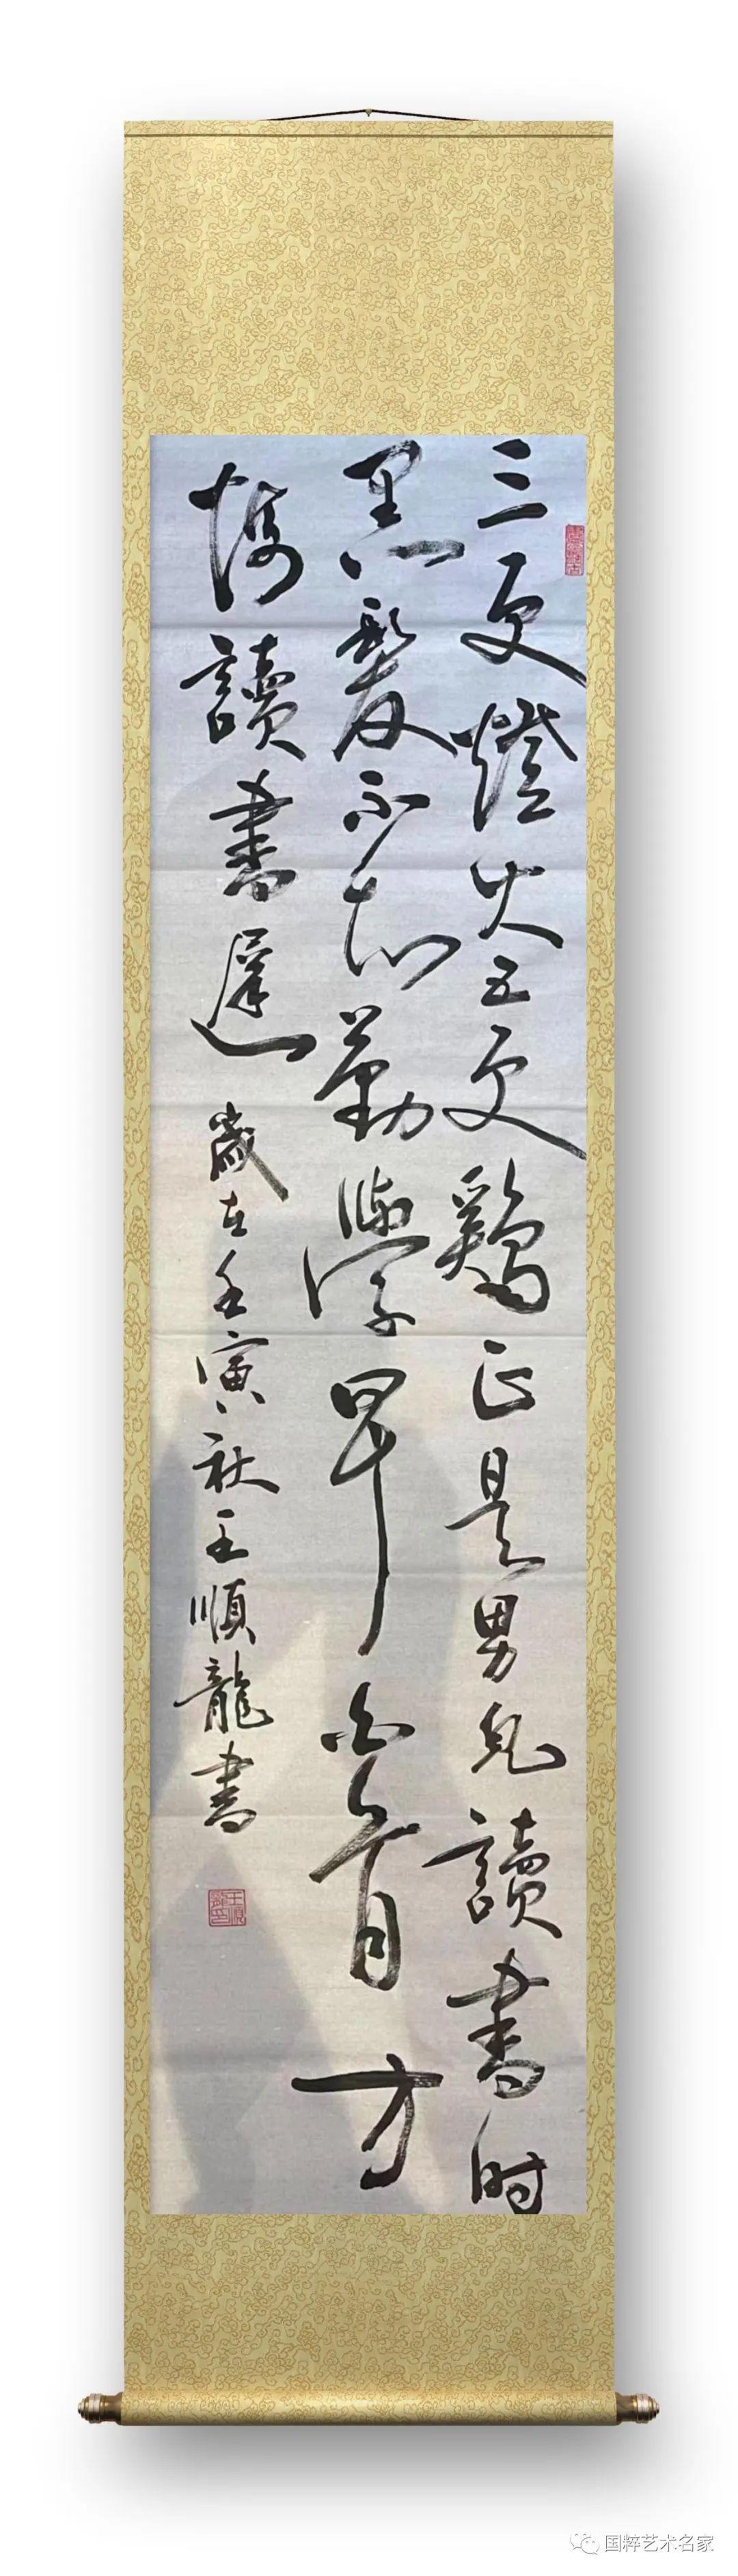 三更燈火五更鷄正是男兒讀書時
黑髮不知勤學早白首方
悔讀書遲
歲在壬寅秋王順龍書
国粹艺术名家